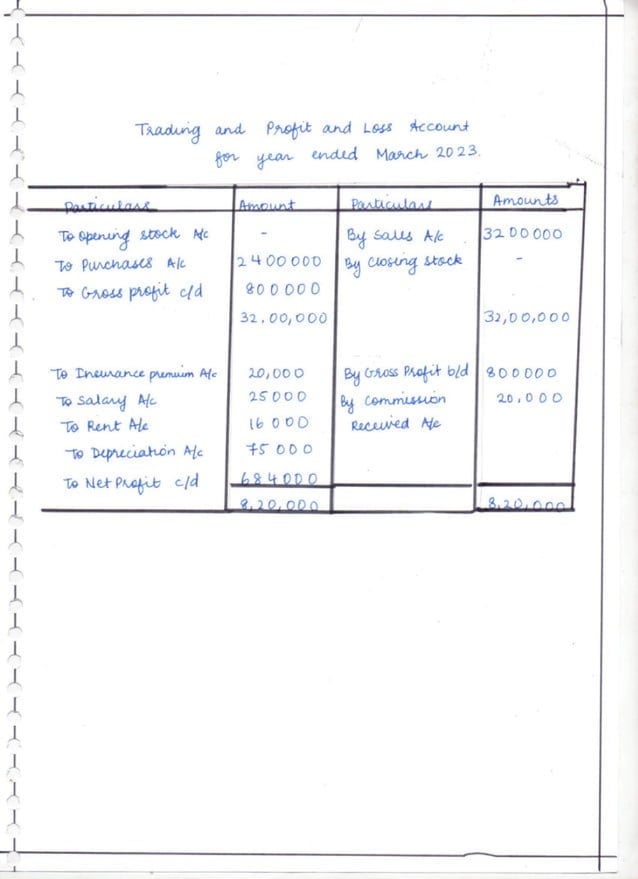 Trading and Profit and Loss Account
for year ended March 2023.
Particulars Amount Particulars Amounts
To Opening stock A/c - By Sales A/c 3200000
To Purchases A/c 2400000 By Closing stock -
To Gross profit c/d 800000
32,00,000 32,00,000
To Insurance premium A/c 20,000 By Gross Profit b/d 800000
To Salary A/c 25000 By Commission 20,000
To Rent A/c 16000 Received A/c
To Depreciation A/c 75000
To Net Profit c/d 684000
8,20,000 8,20,000